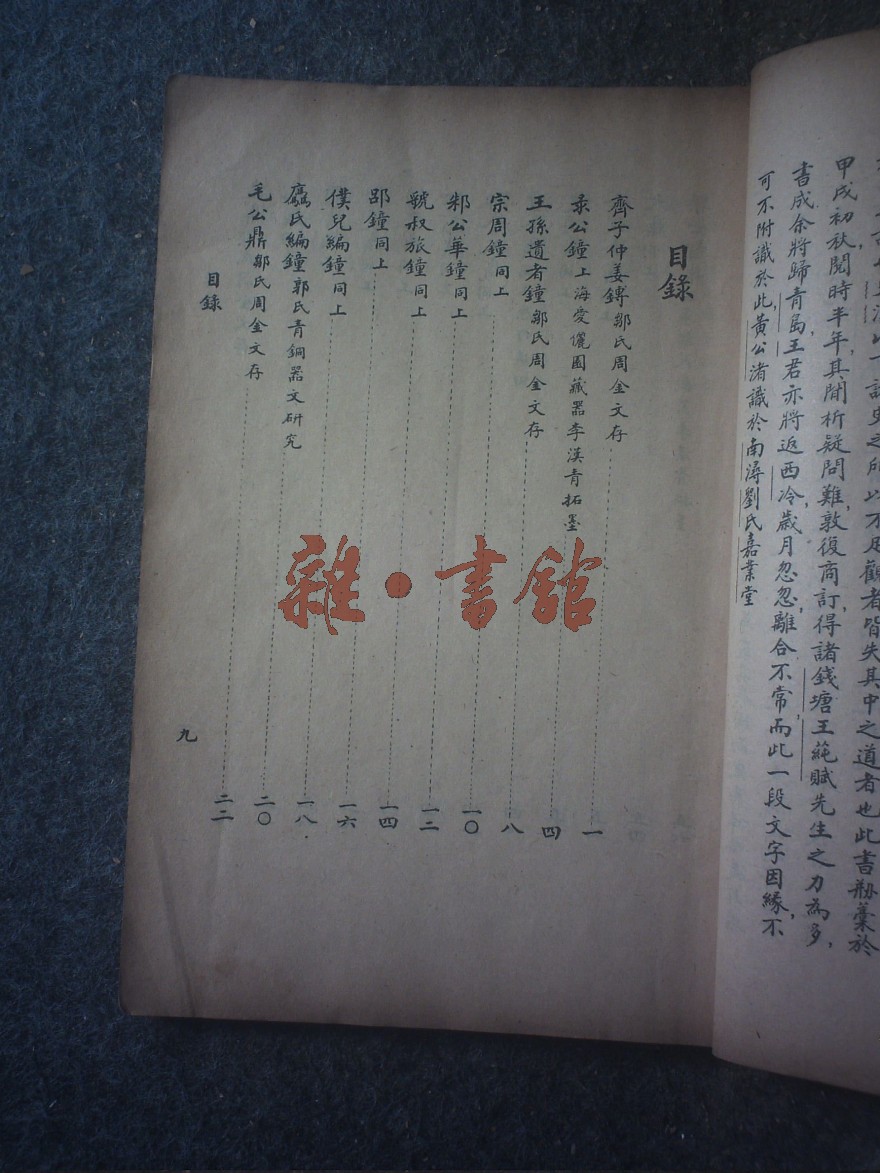 甲戌初秋閱時半年其間析疑問難敦復商訂得諸錢塘王蒓賦先生之力為多
書成余將歸青島王君亦將返西泠歲月忽忽離合不常而此一段文字因緣不
可不附識於此黃公渚識於南潯劉氏嘉業堂
目錄
齊子仲姜鎛鄒氏周金文存 一
彔公鐘上海愛儷園藏器李漢青拓墨 四
王孫遺者鐘鄒氏周金文存 八
宗周鐘同上 一〇
邾公華鐘同上 一二
虢叔旅鐘同上 一四
郘鐘同上 一六
僕兒編鐘同上 一八
驫氏編鐘郭氏青銅器文研究 二〇
毛公鼎鄒氏周金文存 二二
目錄
九
雜·書館